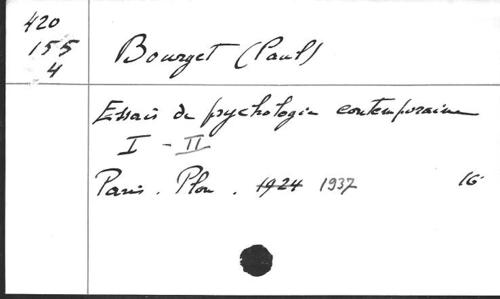 420
155
4
Bourget (Paul)
Essais de psychologie contemporaine
I - II
Paris. Plon. 1924 1937 16